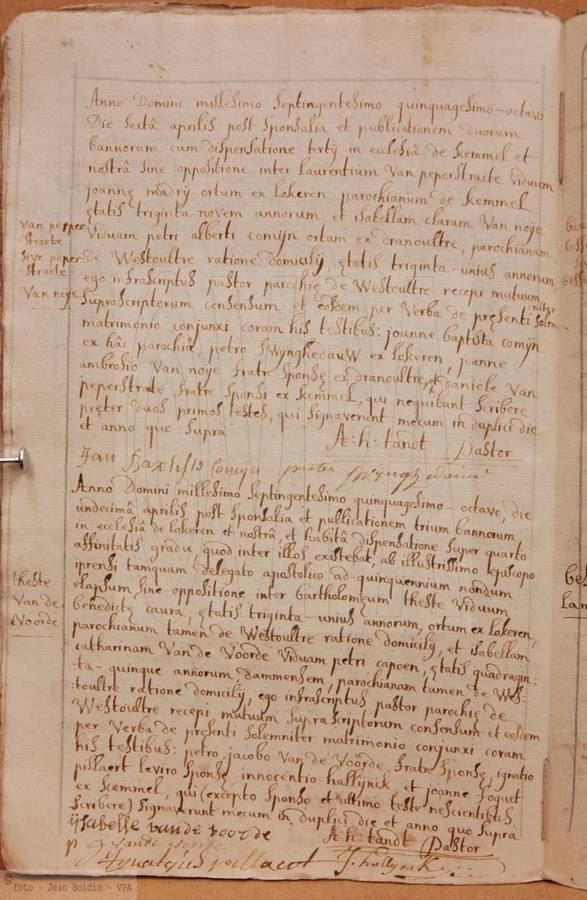 Anno Domini millesimo septingentesimo quinquagesimo-octavo
Die sextâ aprilis post sponsalia et publicationem duorum
bannorum cum dispensatione tertÿ in ecclesiâ de kemmel et
nostrâ sine oppositione inter laurentium Van peperstraete viduum
joannę madrÿ ortum ex lokeren, parochianum de kemmel
ętatis triginta-novem annorum et isabellam claram Van noÿe
viduam petri alberti comÿn ortam ex dranoultre, parochianam
de Westoultre ratione domicilÿ, ętatis triginta-unius annorum,
ego infrascriptus pastor parochię de Westoultre recepi mutuum
suprascriptorum consensum et eosdem per verba de pręsenti solem-
niter
matrimonio conjunxi coram his testibus: joanne baptista comÿn
ex hâc parochiâ, petro swÿnghedauW ex lokeren, joanne
ambrosio Van noÿe fratre sponsę ex dranoultre, et daniele Van
peperstrate fratre sponsi ex kemmel, qui nequibant scribere
pręter duos primos testes, qui signaverunt mecum in duplici die
et anno quo supra
A: h: tandt Pastor
van pepper
straete
sive peper
straete
Van noÿe
Jan Baptiste Comÿn pieter swÿnghedauw
Anno Domini millesimo septingentesimo quinquagesimo-octavo, die
undecimâ aprilis post sponsalia et publicationem trium bannorum
in ecclesiâ de lokeren et nostrâ, et habitâ dispensatione super quarto
affinitatis gradu, quod inter illos existebat, ab illustrissimo episcopo
iprensi tamquam delegato apostolico ad quinquennium nondum
elapsum, sine oppositione inter bartholomęum theste viduum
benedictę caura, ętatis triginta-unius annorum, ortum ex lokeren,
parochianum tamen de Westoultre ratione domicilÿ, et isabellam
catharinam Van de Voorde viduam petri capoen, ętatis quadragin-
ta-quinque annorum, dammensem, parochianam tamen de Wes-
toultre ratione domicilÿ, ego infrascriptus pastor parochię de
Westoultre recepi mutuum suprascriptorum consensum et eosdem
per verba de pręsenti solemniter matrimonio conjunxi coram
his testibus: petro jacobo Van de Voorde fratre sponsę, ignatio
pillaert leviro sponsę, innocentio hallÿnck et joanne foquet
ex kemmel, qui (excepto sponso et ultimo teste nescientibus
scribere) signaverunt mecum in duplici die et anno quo supra
A: h: tandt Pastor
theste
Van de
Voorde
ijsabelle vande voorde
p J vande voorde
Ignatius pillaert J. hallynck
© foto - Jean Boidin - VPA